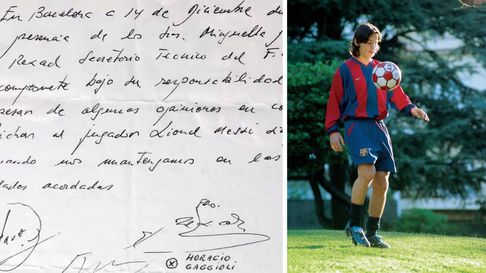 En Barcelona a 14 de Diciembre de
presencia de los Srs. Minguella
Rexach Secretario Técnico del F.
compromete bajo su responsabilidad
pesar de algunas opiniones en co
fichar al jugador Lionel Messi s
uando nos mantengamos en las
dades acordadas
HORACIO
GAGGIOLI